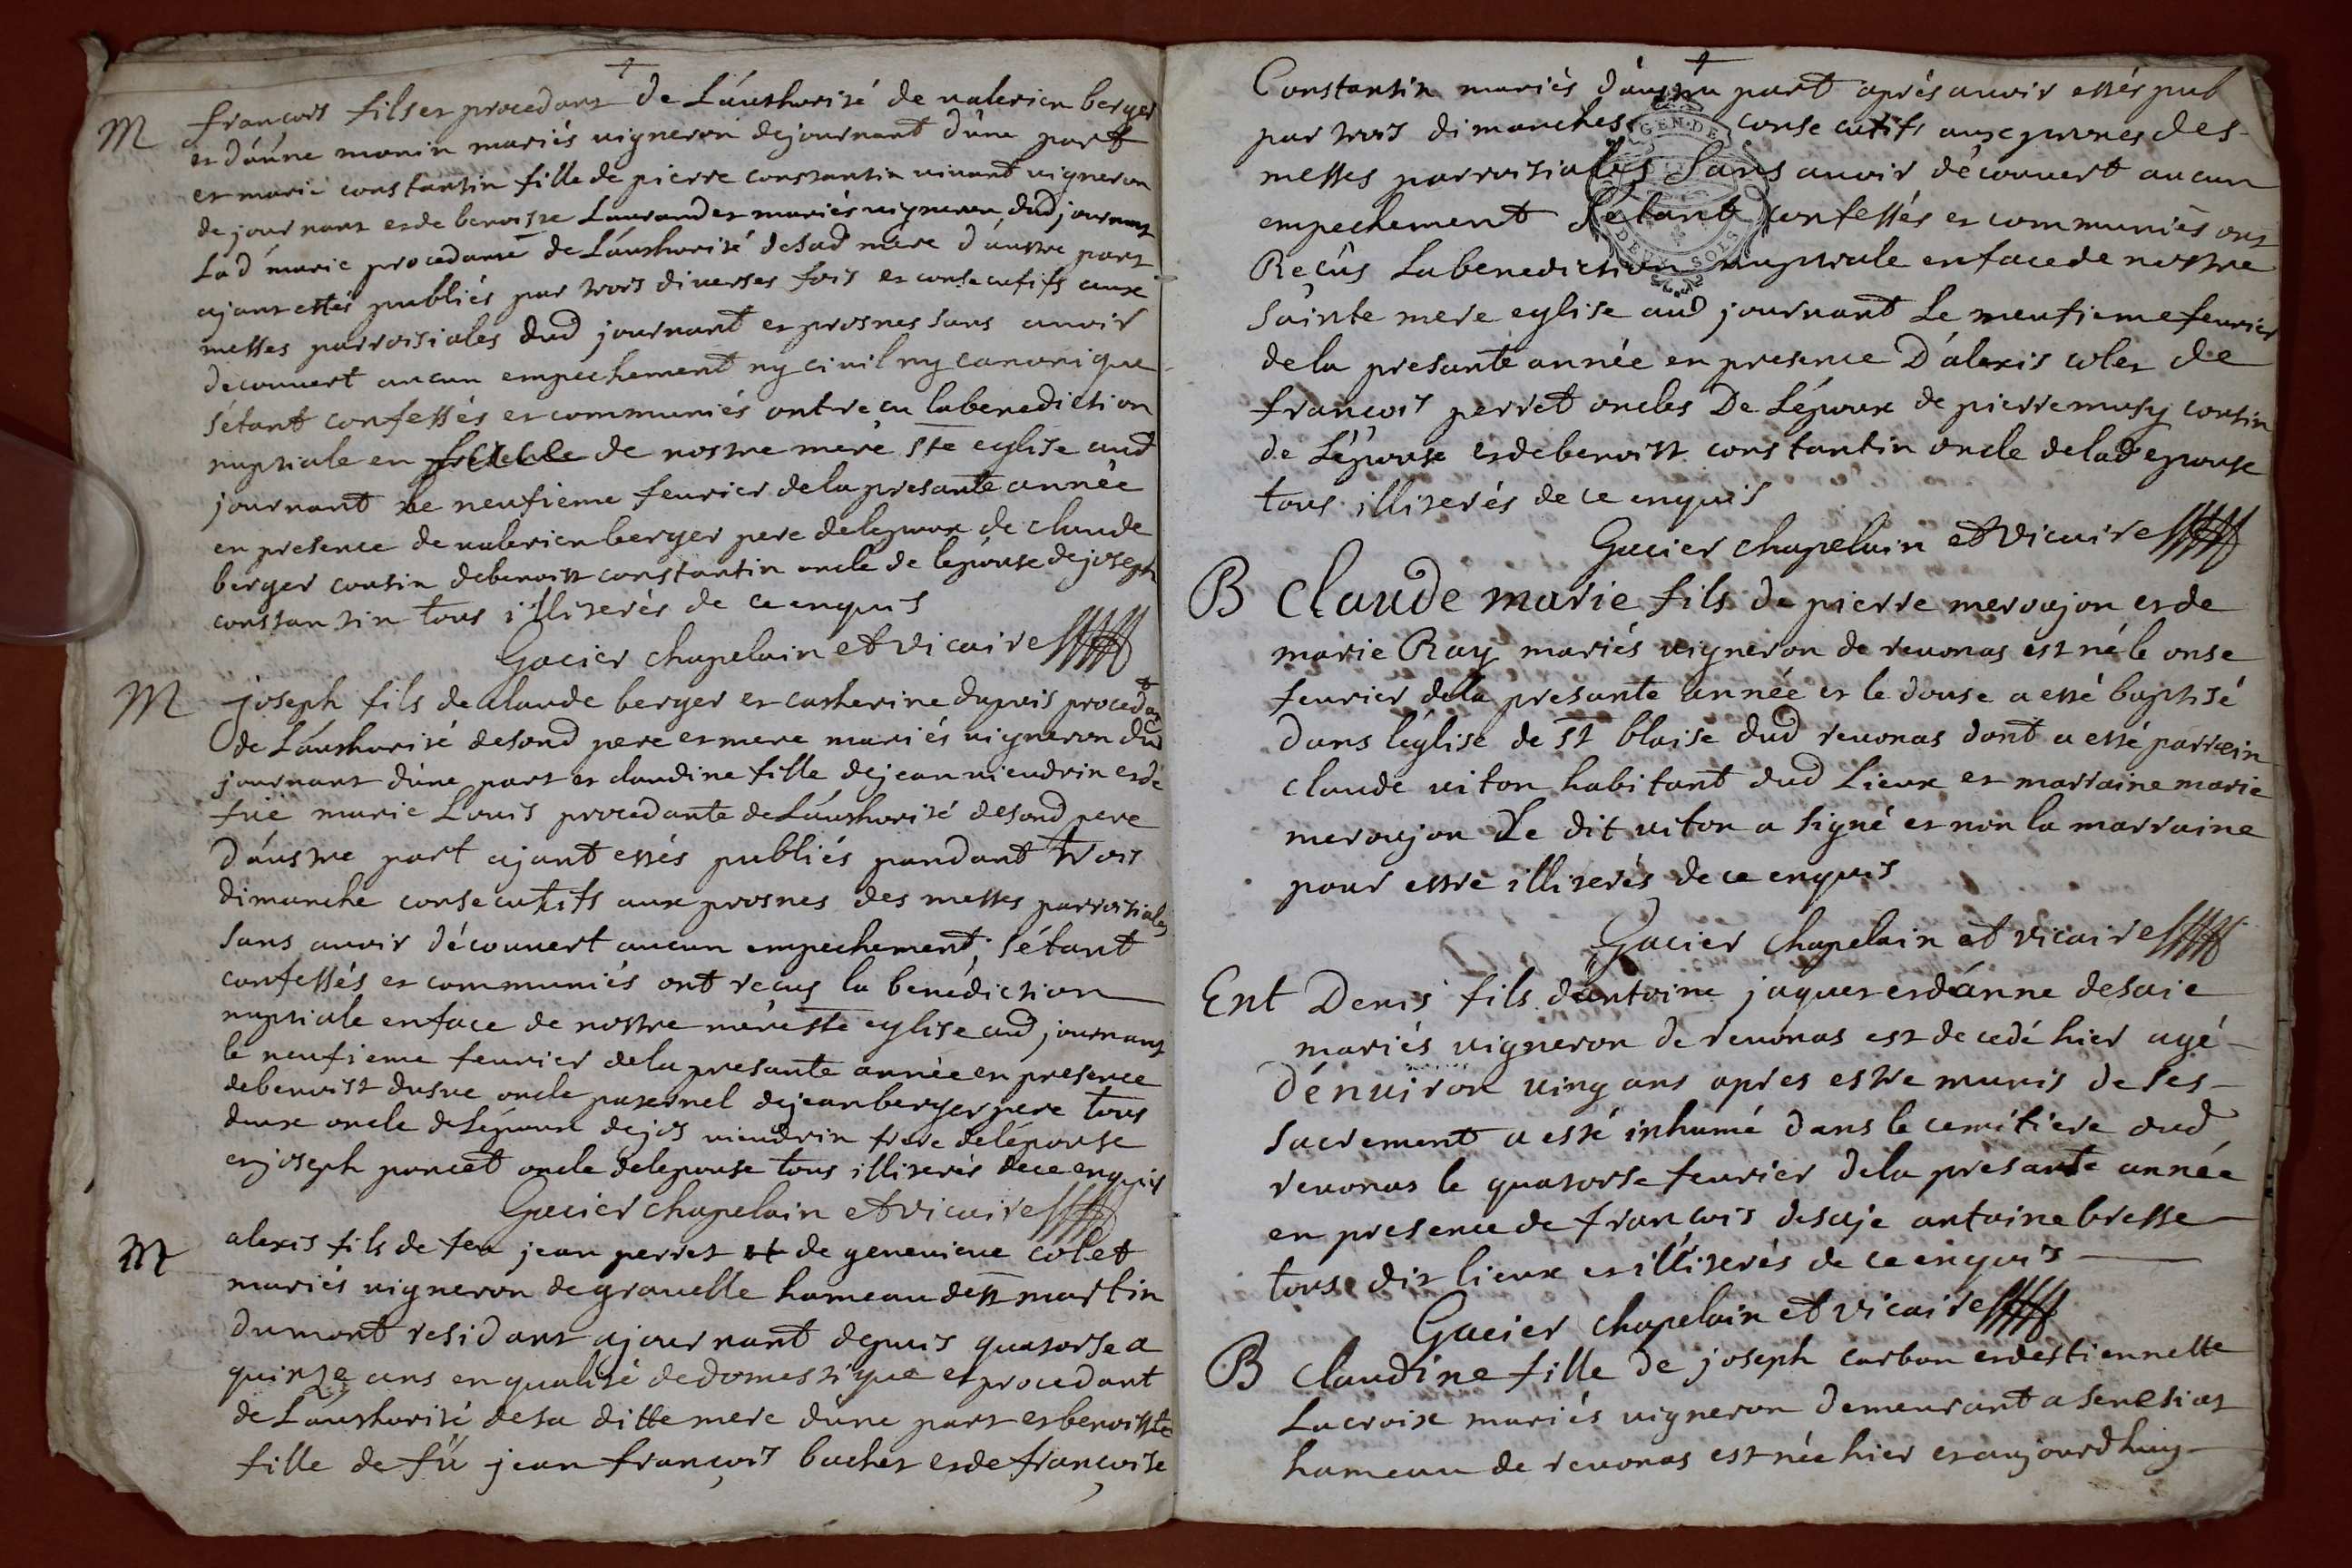 M francois fils et procedant de L'authorité de valerien berger
et d'anne monin mariés vigneron de journant d'une part
et marie constantin fille de pierre constantin vivant vigneron
de journant et de benoiste Laurand et mariés vigneron dud journant
Lad marie procedante de L'authorité de sad mere d'autre part
ajant estés publiés par trois diverses fois et consecutifs aux
messes parroisiales dud journant et prosnes sans avoir
decouvert aucun empechement ny civil ny canonique
s'étant confessés et communiés ont recu la benediction
nuptiale en de nostre mere ste eglise aud
journant le neufieme fevrier de la presante année
en presence de valerien berger pere de lepoux de claude
berger cousin de benoist constantin oncle de lepouse de joseph
constantin tous illiterés de ce enquis
Gacier chapelain et vicaire
M joseph fils de claude berger et catherine dupuis procedant
de L'authorité de sond pere et mere mariés vigneron dud
journant d'une part et claudine fille de jean vieudrin et de
fue marie Louis procedante de L'authorité de sond pere
d'autre part ajant estés publiés pandant trois
dimanche consecutifs aux prosnes des messes parroisiales
sans avoir découvert aucun empechement, s'étant
confessés et communiés ont reçus la benédiction
nuptiale en face de nostre mere ste eglise aud journant
le neufieme fevrier de la presante année en presence
de benoist oncle paternel de jean berger pere tous
deux oncle de L'époux de jos vieudrin frere de l'épouse
et joseph poncet oncle de lepouse tous illiterés de ce enquis
Gacier chapelain et vicaire
M alexis fils de feu jean perret et de genevieve colet
mariés vigneron de gravelle hameau de st martin
du mont residant a journant depuis quatorse a
quinze ans en qualité de domestique et procedant
de L'authorité de sa ditte mere d'une part et benoisste
fille de fû jean françois buchet et de françoise
Constantin mariés d'autre part aprés avoir estés pub
par trois dimanches consecutifs aux prones des
messes parroisiales sans avoir découvert aucun
empechement s'étant confessés et communiés ont
Reçûs la benediction nuptiale en face de nostre
sainte mere eglise aud journant Le neufieme fevrier
de la presante année en presence D'alexis colet de
françois perret oncles De L'époux de pierre musy cousin
de L'épouse et de benoist constantin oncle de lad epouse
tous illiterés de ce enquis
Gacier chapelain et vicaire
B Claude marie fils de pierre meroujon et de
marie Ray mariés vigneron de revonas est né le onse
fevrier de la presante année et le douse a esté baptisé
dans l'église de st blaise dud revonas dont a esté parrein
claude viton habitant dud Lieux et marraine marie
meroujon Le dit viton a signé et non la marraine
pour estre illiterés de ce enquis
Gacier chapelain et vicaire
Ent Denis fils d'antoine jaquet et d'anne desaie
mariés vigneron de revonas est decedé hier agé
d'environ ving ans apres estre munis de ses
sacrement a esté inhumé dans le cemitiere dud
revonas le quatorse fevrier de la presante année
en presence de francois desaje antoine bresse
tous dit lieux et illiterés de ce enquis
Gacier chapelain et vicaire
B Claudine fille de joseph carbon et d'estiennette
Lacroix mariés vigneron demeurant a senesiat
hameau de revonas est née hier et aujourdhuy
GEN·DE
DEUX SOLS